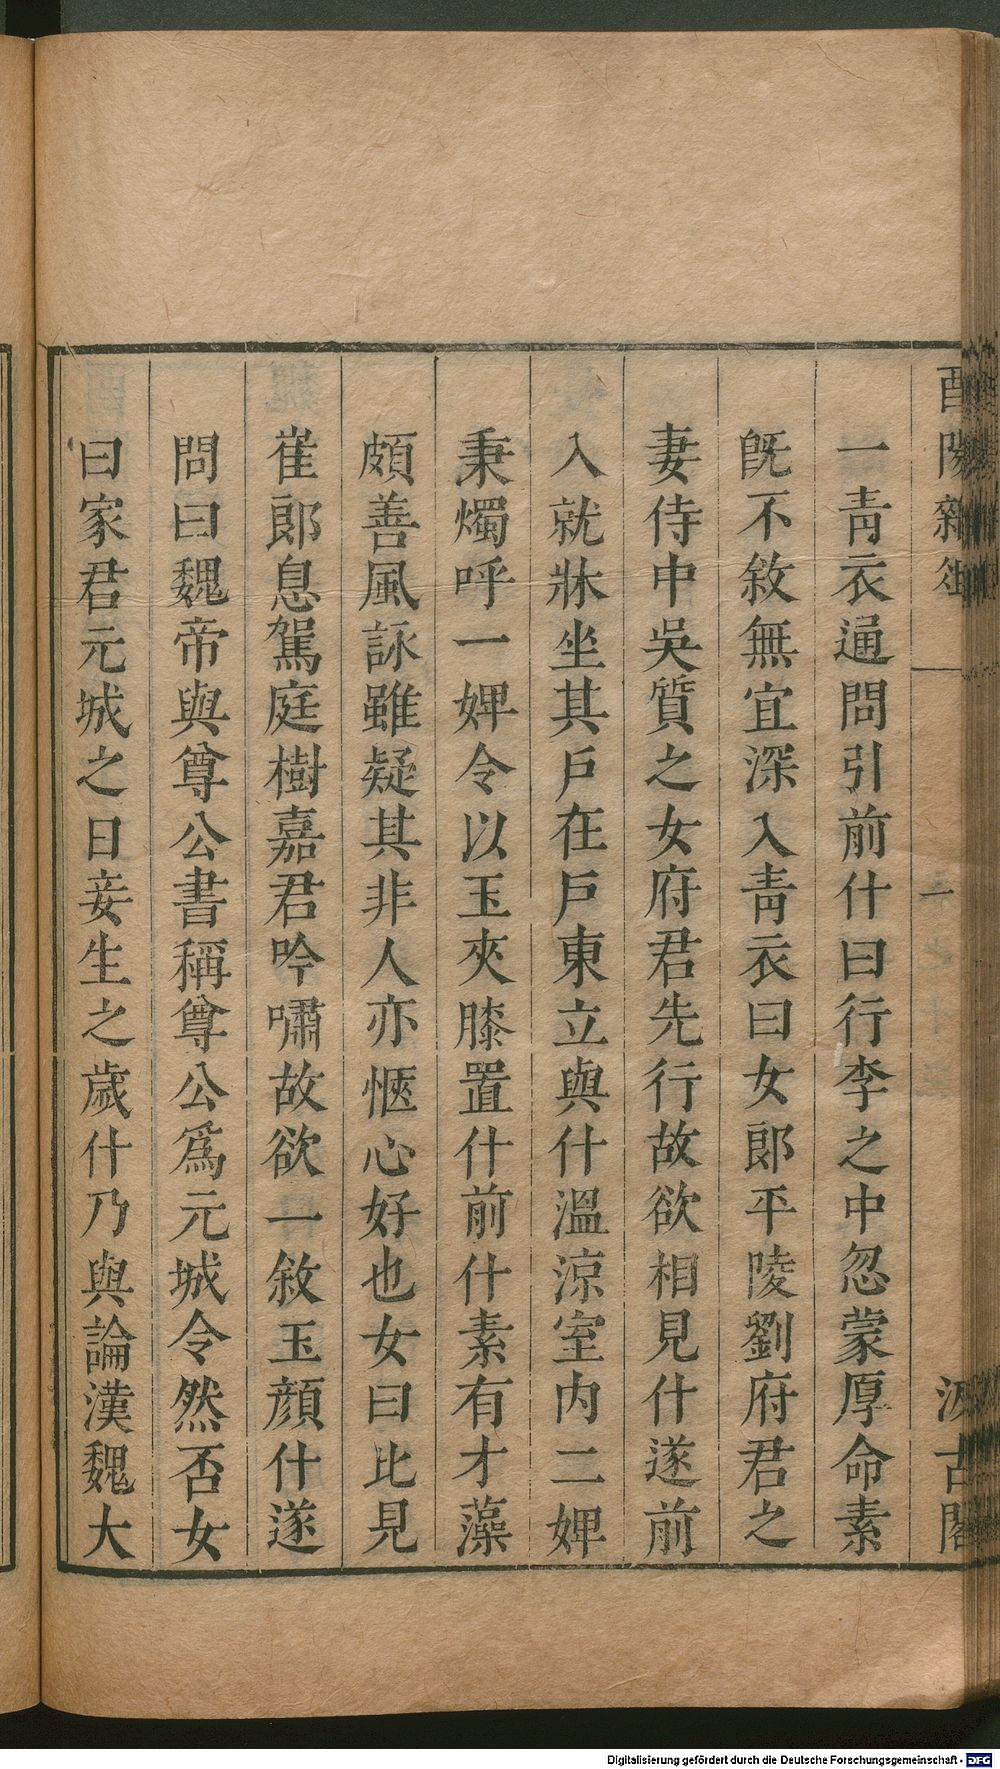 酉陽雜俎
一
汲古閣
一靑衣通問引前什曰行李之中忽蒙厚命素
旣不敘無宜深入靑衣曰女郎平陵劉府君之
妻侍中吳質之女府君先行故欲相見什遂前
入就牀坐其戶在戶東立與什溫涼室内二婢
秉燭呼一婢令以玉夾膝置什前什素有才藻
頗善風詠雖疑其非人亦愜心好也女曰比見
崔郎息駕庭樹嘉君吟嘯故欲一敘玉顏什遂
問曰魏帝與尊公書稱尊公爲元城令然否女
曰家君元城之日妾生之歲什乃與論漢魏大
Digitalisierung gefördert durch die Deutsche Forschungsgemeinschaft - DFG